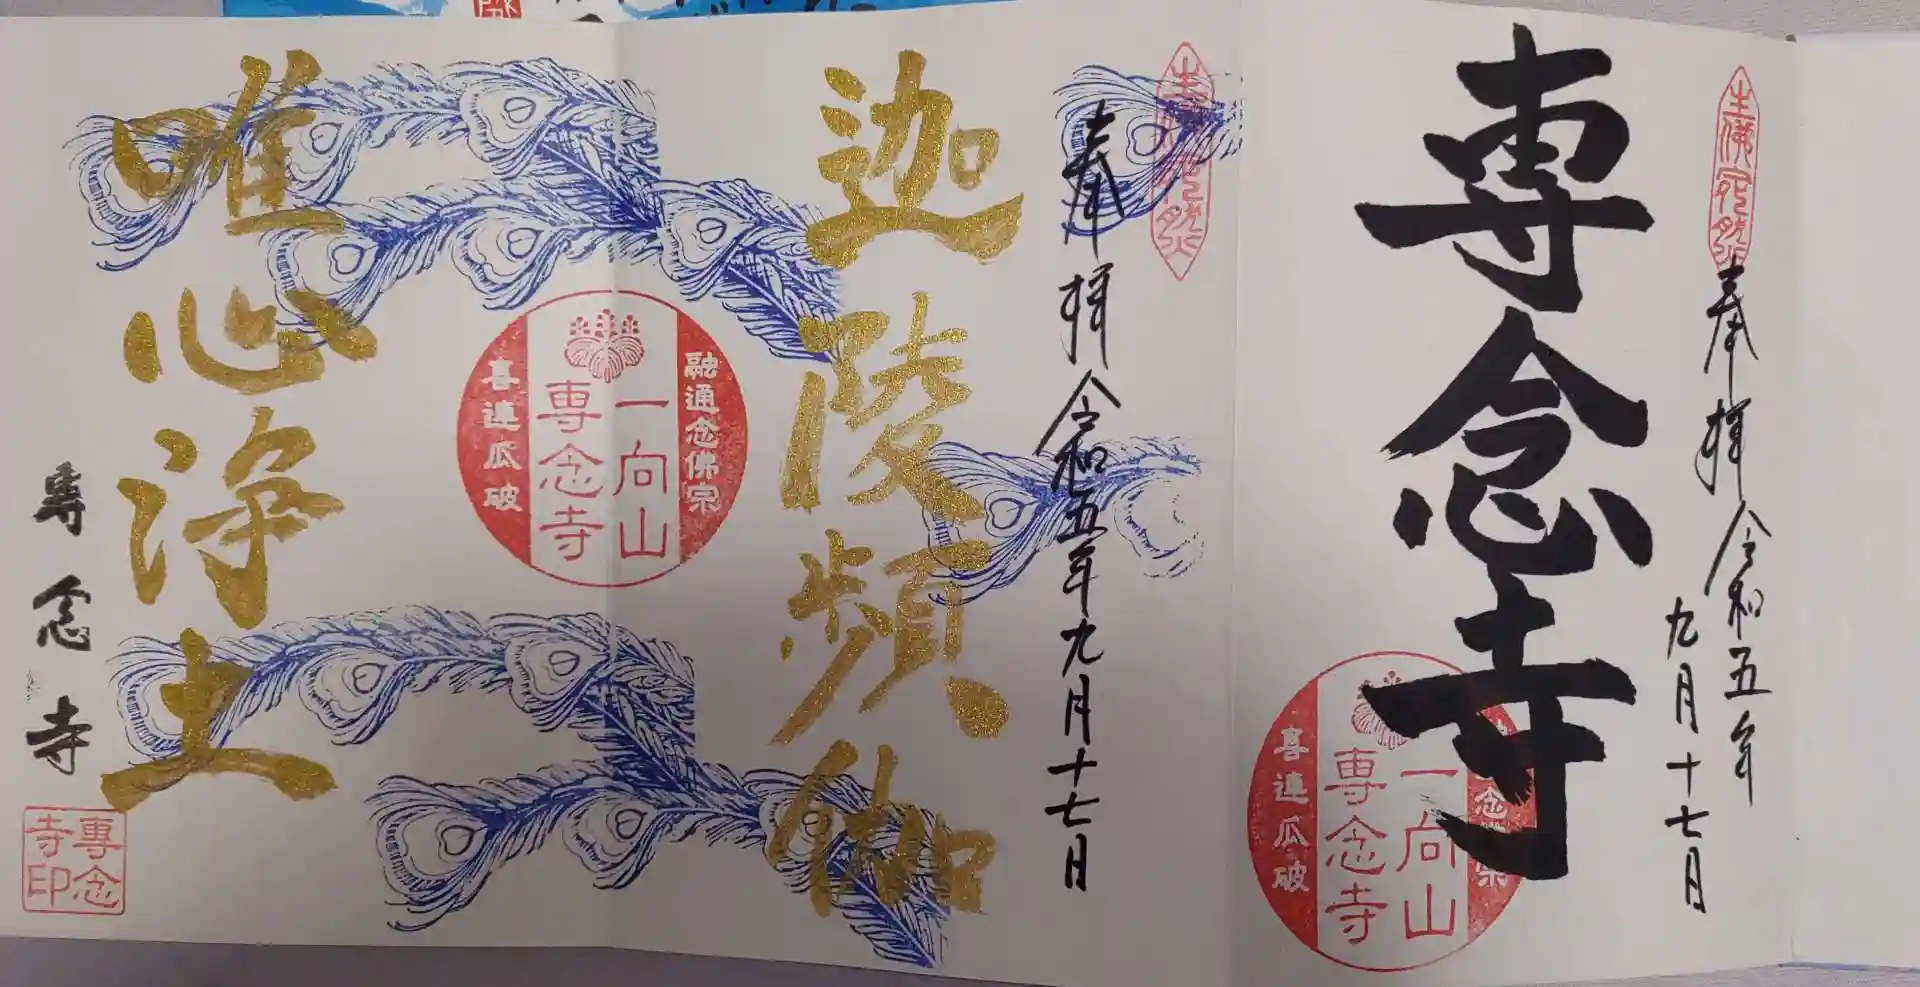 奉拝 令和五年
九月十七日
専念寺
一向山
専念寺
喜連瓜破
奉拝 令和五年九月十七日
迦陵頻伽
融通念佛宗
一向山
専念寺
喜連瓜破
唯心浄土
専念寺
専念
寺印